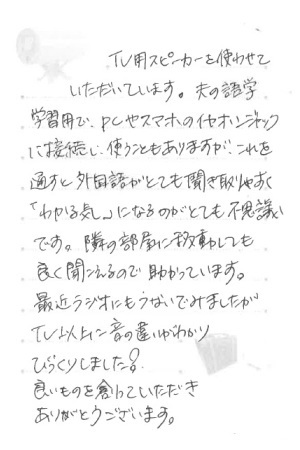 TV用スピーカーを使わせて
いただいています。夫の語学
学習用で、PCやスマホのイヤホンジャック
に接続し、使うこともありますが、これを
通すと外国語がとても聞き取りやすく
「わかる気」になるのがとても不思議
です。隣の部屋に移動しても
良く聞こえるので助かっています。
最近ラジオにもつないでみましたが
TV以上に音の違いがわかり
びっくりしました!
良いものを創っていただき
ありがとうございます。